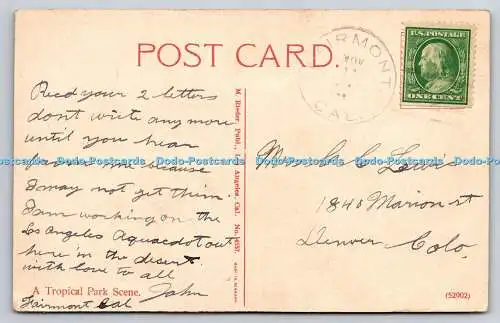 POST CARD.
FAIRMONT
NOV
CAL.
U.S. POSTAGE
ONE CENT
Recd your 2 letters
dont write any more
until you hear
from me because
I may not get them
I am working on the
Los Angeles Aquacdot out
here in the desert.
with love to all
John
Fairmont Cal
A Tropical Park Scene.
M. Rieder, Publ., Los Angeles, Cal. No. 14537
Mrs C C Lewis
1840 Marion st
Denver Colo.
(52902)
Dodo-Postcards Dodo-Postcards Dodo-Postcards Dodo-Postcards Dodo-Postcards